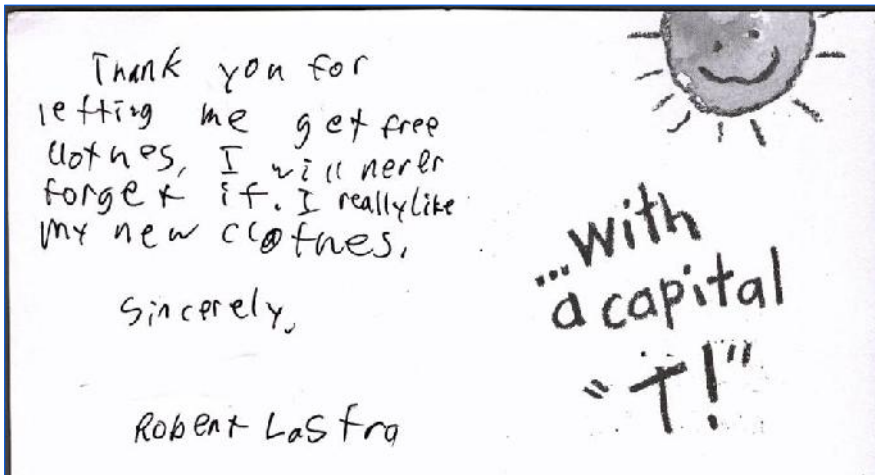 Thank you for
letting me get free
clothes, I will never
forget it. I really like
my new clothes.
Sincerely,
Robert Lastra
...with
a capital
"T!"